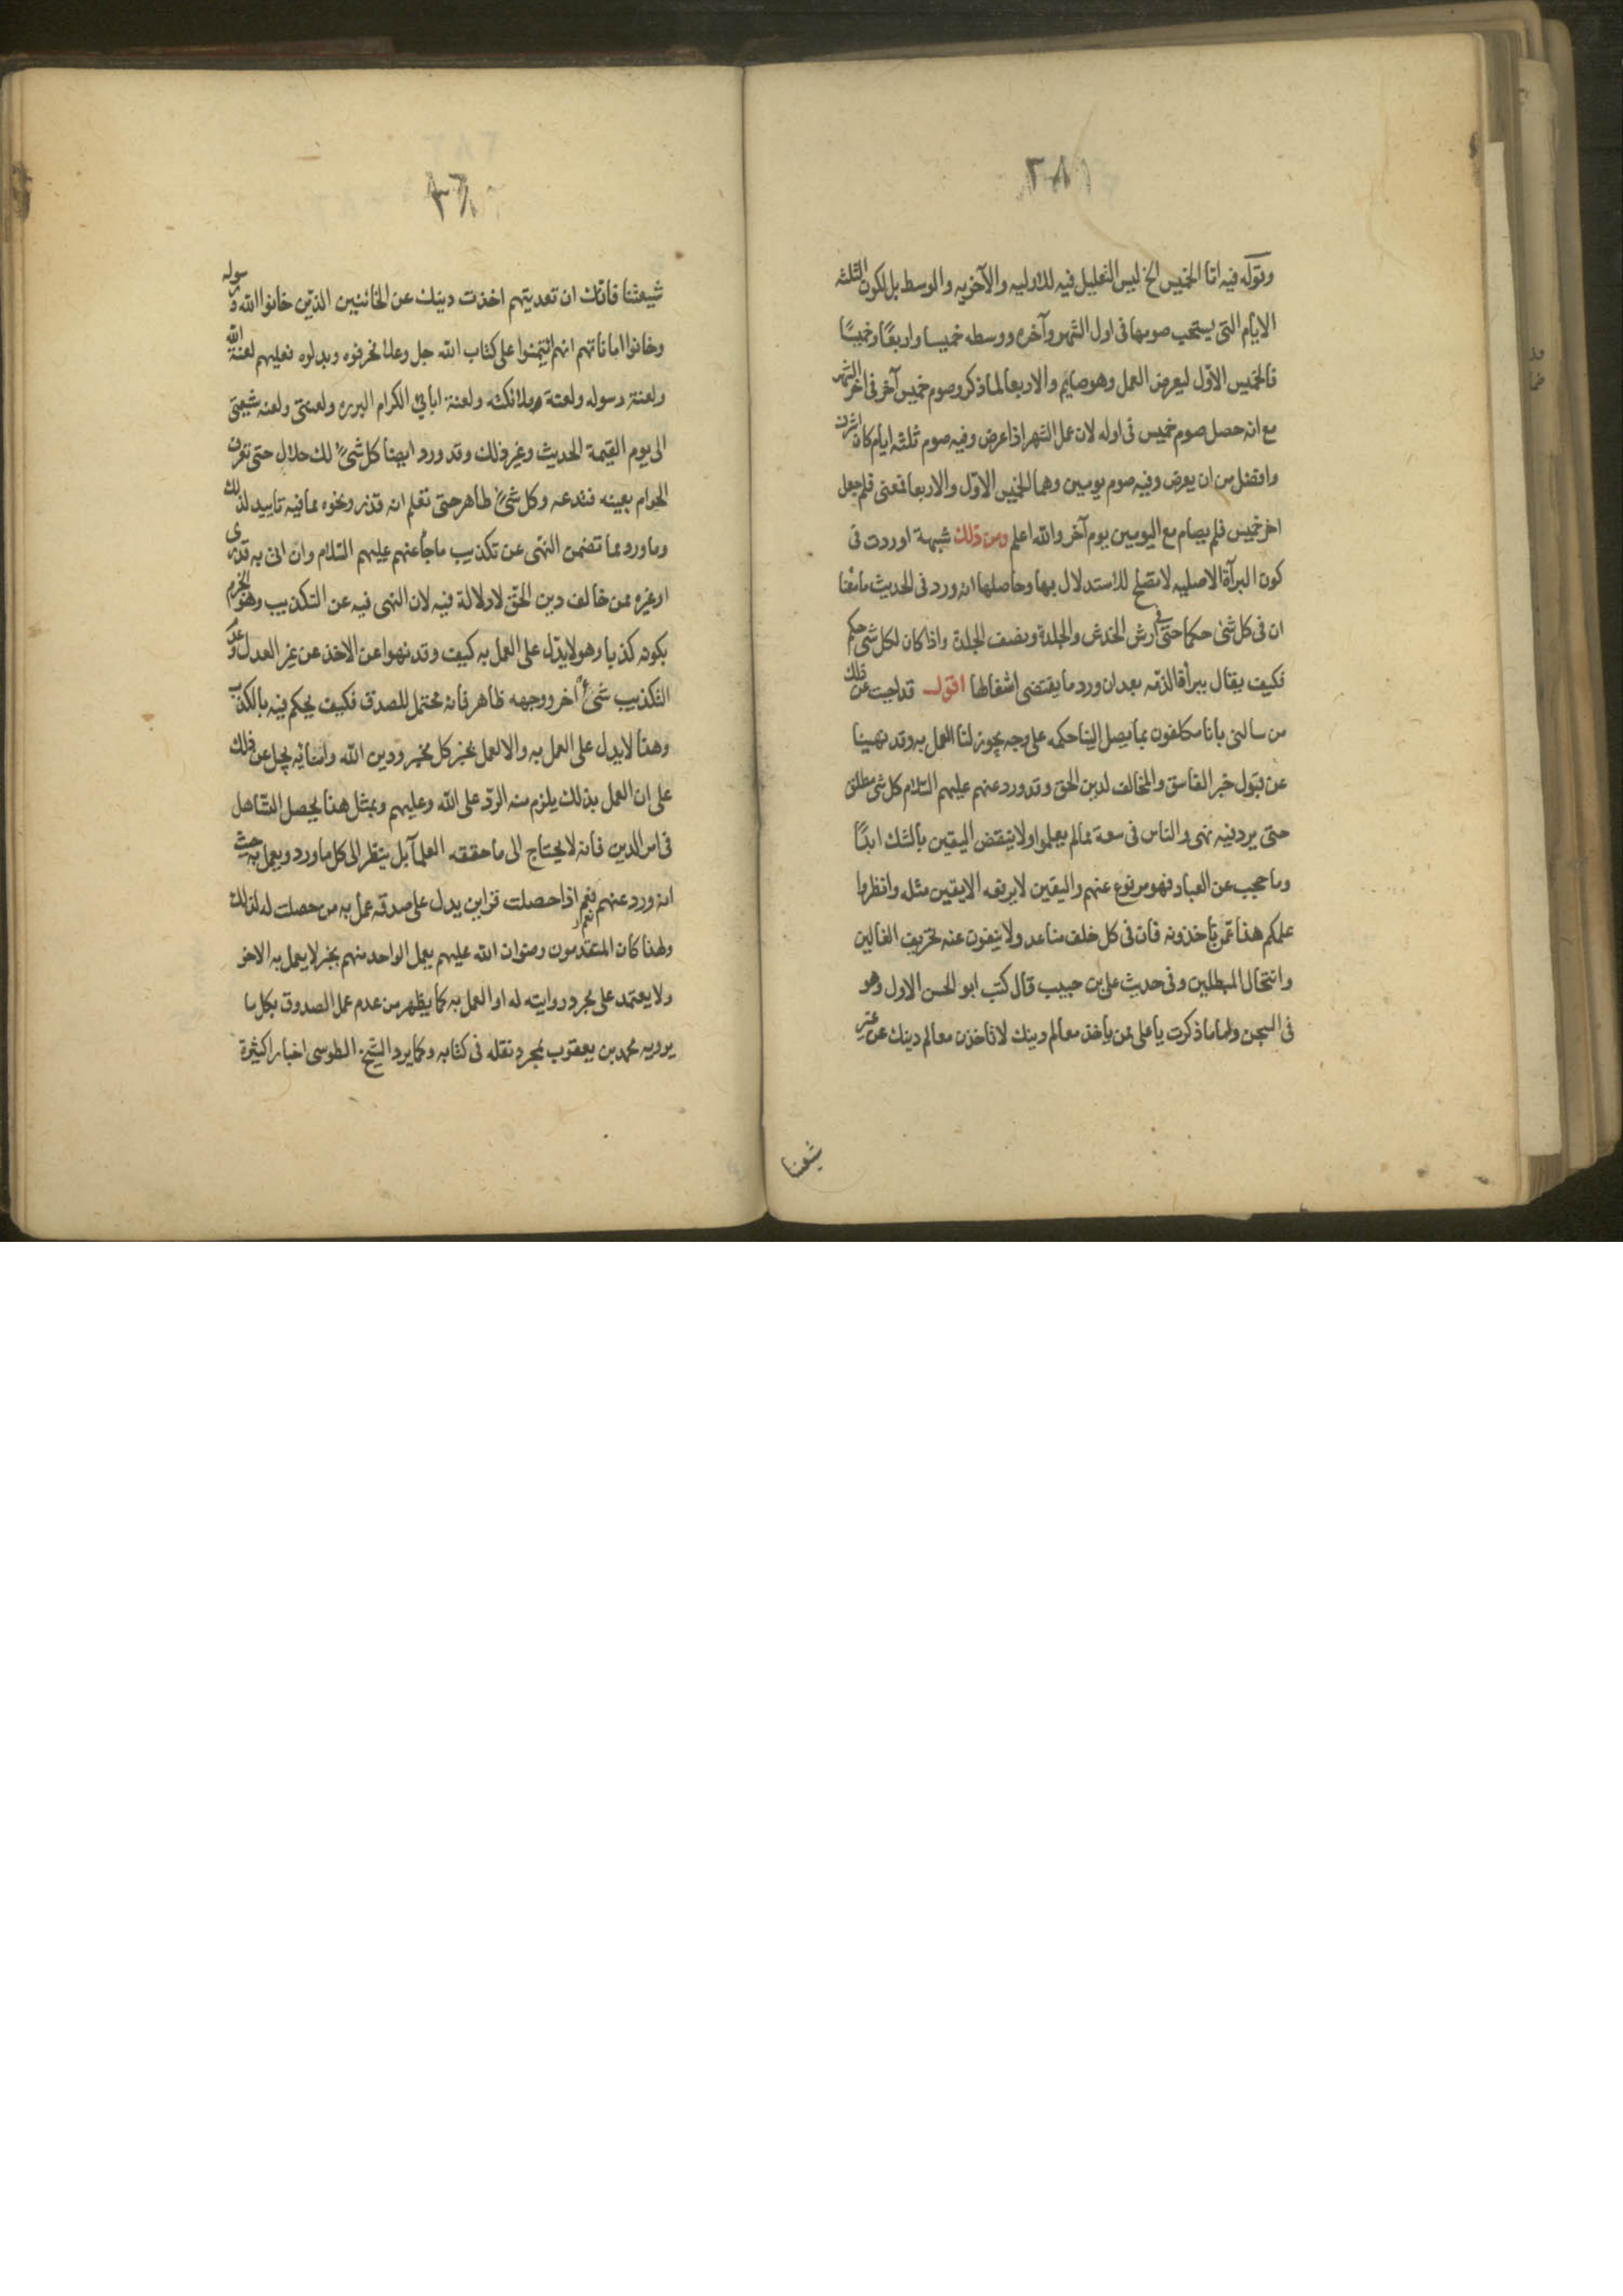 ٢٨١
وقوله فيه اما الخميس الخ ليس التعليل فيه للاوليه والآخريه والوسط بل لكون الثلثه
الايام التى يستحب صومها فى اول الشهر وآخره ووسطه خميسا واربعًا وخميسًا
فالخميس الاوّل ليعرض العمل وهو صايم والاربعا لما ذكر وصوم خميس آخر فى آخر الشهر
مع انه حصل صوم خميس فى اوله لان عمل الشهر اذا عرض وفيه صوم ثلثه ايام كان اشرف
وافضل من ان يعرض وفيه صوم يومين وهما الخميس الاوّل والاربعا فمعنى فلم جعل
اخر خميس فلم يصام مع اليومين يوم آخر والله اعلم ومن ذلك شبهة اوردت فى
كون البرآة الاصليه لا تصلح للاستدلال بها وحاصلها انه ورد فى الحديث ما معنا
ان فى كل شئ حكما حتى فى ارش الخدش والجلدة ونصف الجلدة واذا كان لكل شئ حكم
فكيف يقال ببرأة الذمّه بعد ان ورد ما يقتضى اشغالها اقول قد اجبت عن ذلك
من سالنى بانا مكلفون بما يصل الينا حكمه على وجه يجوز لنا العمل به وقد نهينا
عن قبول خبر الفاسق والمخالف لدين الحق وقد ورد عنهم عليهم السلام كل شئ مطلق
حتى يرد فيه نهى والناس فى سعة مما لم يعلموا ولا ينقض اليقين بالشك ابدًا
وما حجب عن العباد فهو مرفوع عنهم واليقين لا يرفعه الا يقين مثله وانظروا
علمكم هذا عمّن تاخذونه فان فى كل خلف منا عدولا ينفون عنه تحريف الغالين
وانتحال المبطلين وفى حديث على بن حبيب قال كتب ابو الحسن الاول وهو
فى السجن واما ما ذكرت يا على ممن ياخذ معالم دينك لا تاخذن معالم دينك عن غير
شيعتنا
شيعتنا فانك ان تعديتهم اخذت دينك عن الخائنين الذين خانوا الله و رسوله
وخانوا اماناتهم انهم ائتمنوا على كتاب الله جل وعلا فحرفوه وبدلوه فعليهم لعنة الله
ولعنة رسوله ولعنة ملائكته ولعنة ابائي الكرام البرره ولعنتى ولعنه شيعتى
الى يوم القيمة الحديث وغير ذلك وقد ورد ايضا كل شئ لك حلال حتى تعرف
الحرام بعينه فتدعه وكل شئ طاهر حتى تعلم انه قذر ونحوه مما فيه تاييد لذلك
وما ورد مما تضمن النهى عن تكذيب ما جآ عنهم عليهم السلام وان اتى به قدرى
او غيره ممن خالف دين الحق لا دلالة فيه لان النهى فيه عن التكذيب وهو الجزم
بكونه كذبا وهو لا يدل على العمل به كيف وقد نهوا عن الاخذ عن غير العدل وعدم
التكذيب شئ آخر ووجهه ظاهر فانه محتمل للصدق فكيف يحكم فيه بالكذب
وهذا لا يدل على العمل به والا لعمل بخبر كل مخبر ودين الله وامنائه يجل عن ذلك
على ان العمل بذلك يلزم منه الردّ على الله وعليهم وبمثل هذا يحصل التساهل
فى امر الدين فانه لا يحتاج الى ما حققه العلمآ بل ينظر الى كل ما ورد ويعمل به حيث
انه ورد عنهم نعم اذا حصلت قراين يدل على صدقه عمل به من حصلت له لذلك
ولهذا كان المتقدمون رضوان الله عليهم يعمل الواحد منهم بخبر لا يعمل به الاخر
ولا يعتمد على مجرد روايته له او العمل به كما يظهر من عدم عمل الصدوق بكل ما
يرويه محمد بن يعقوب بمجرد نقله فى كتابه وكما يرد الشيخ الطوسى اخبارا كثيرة